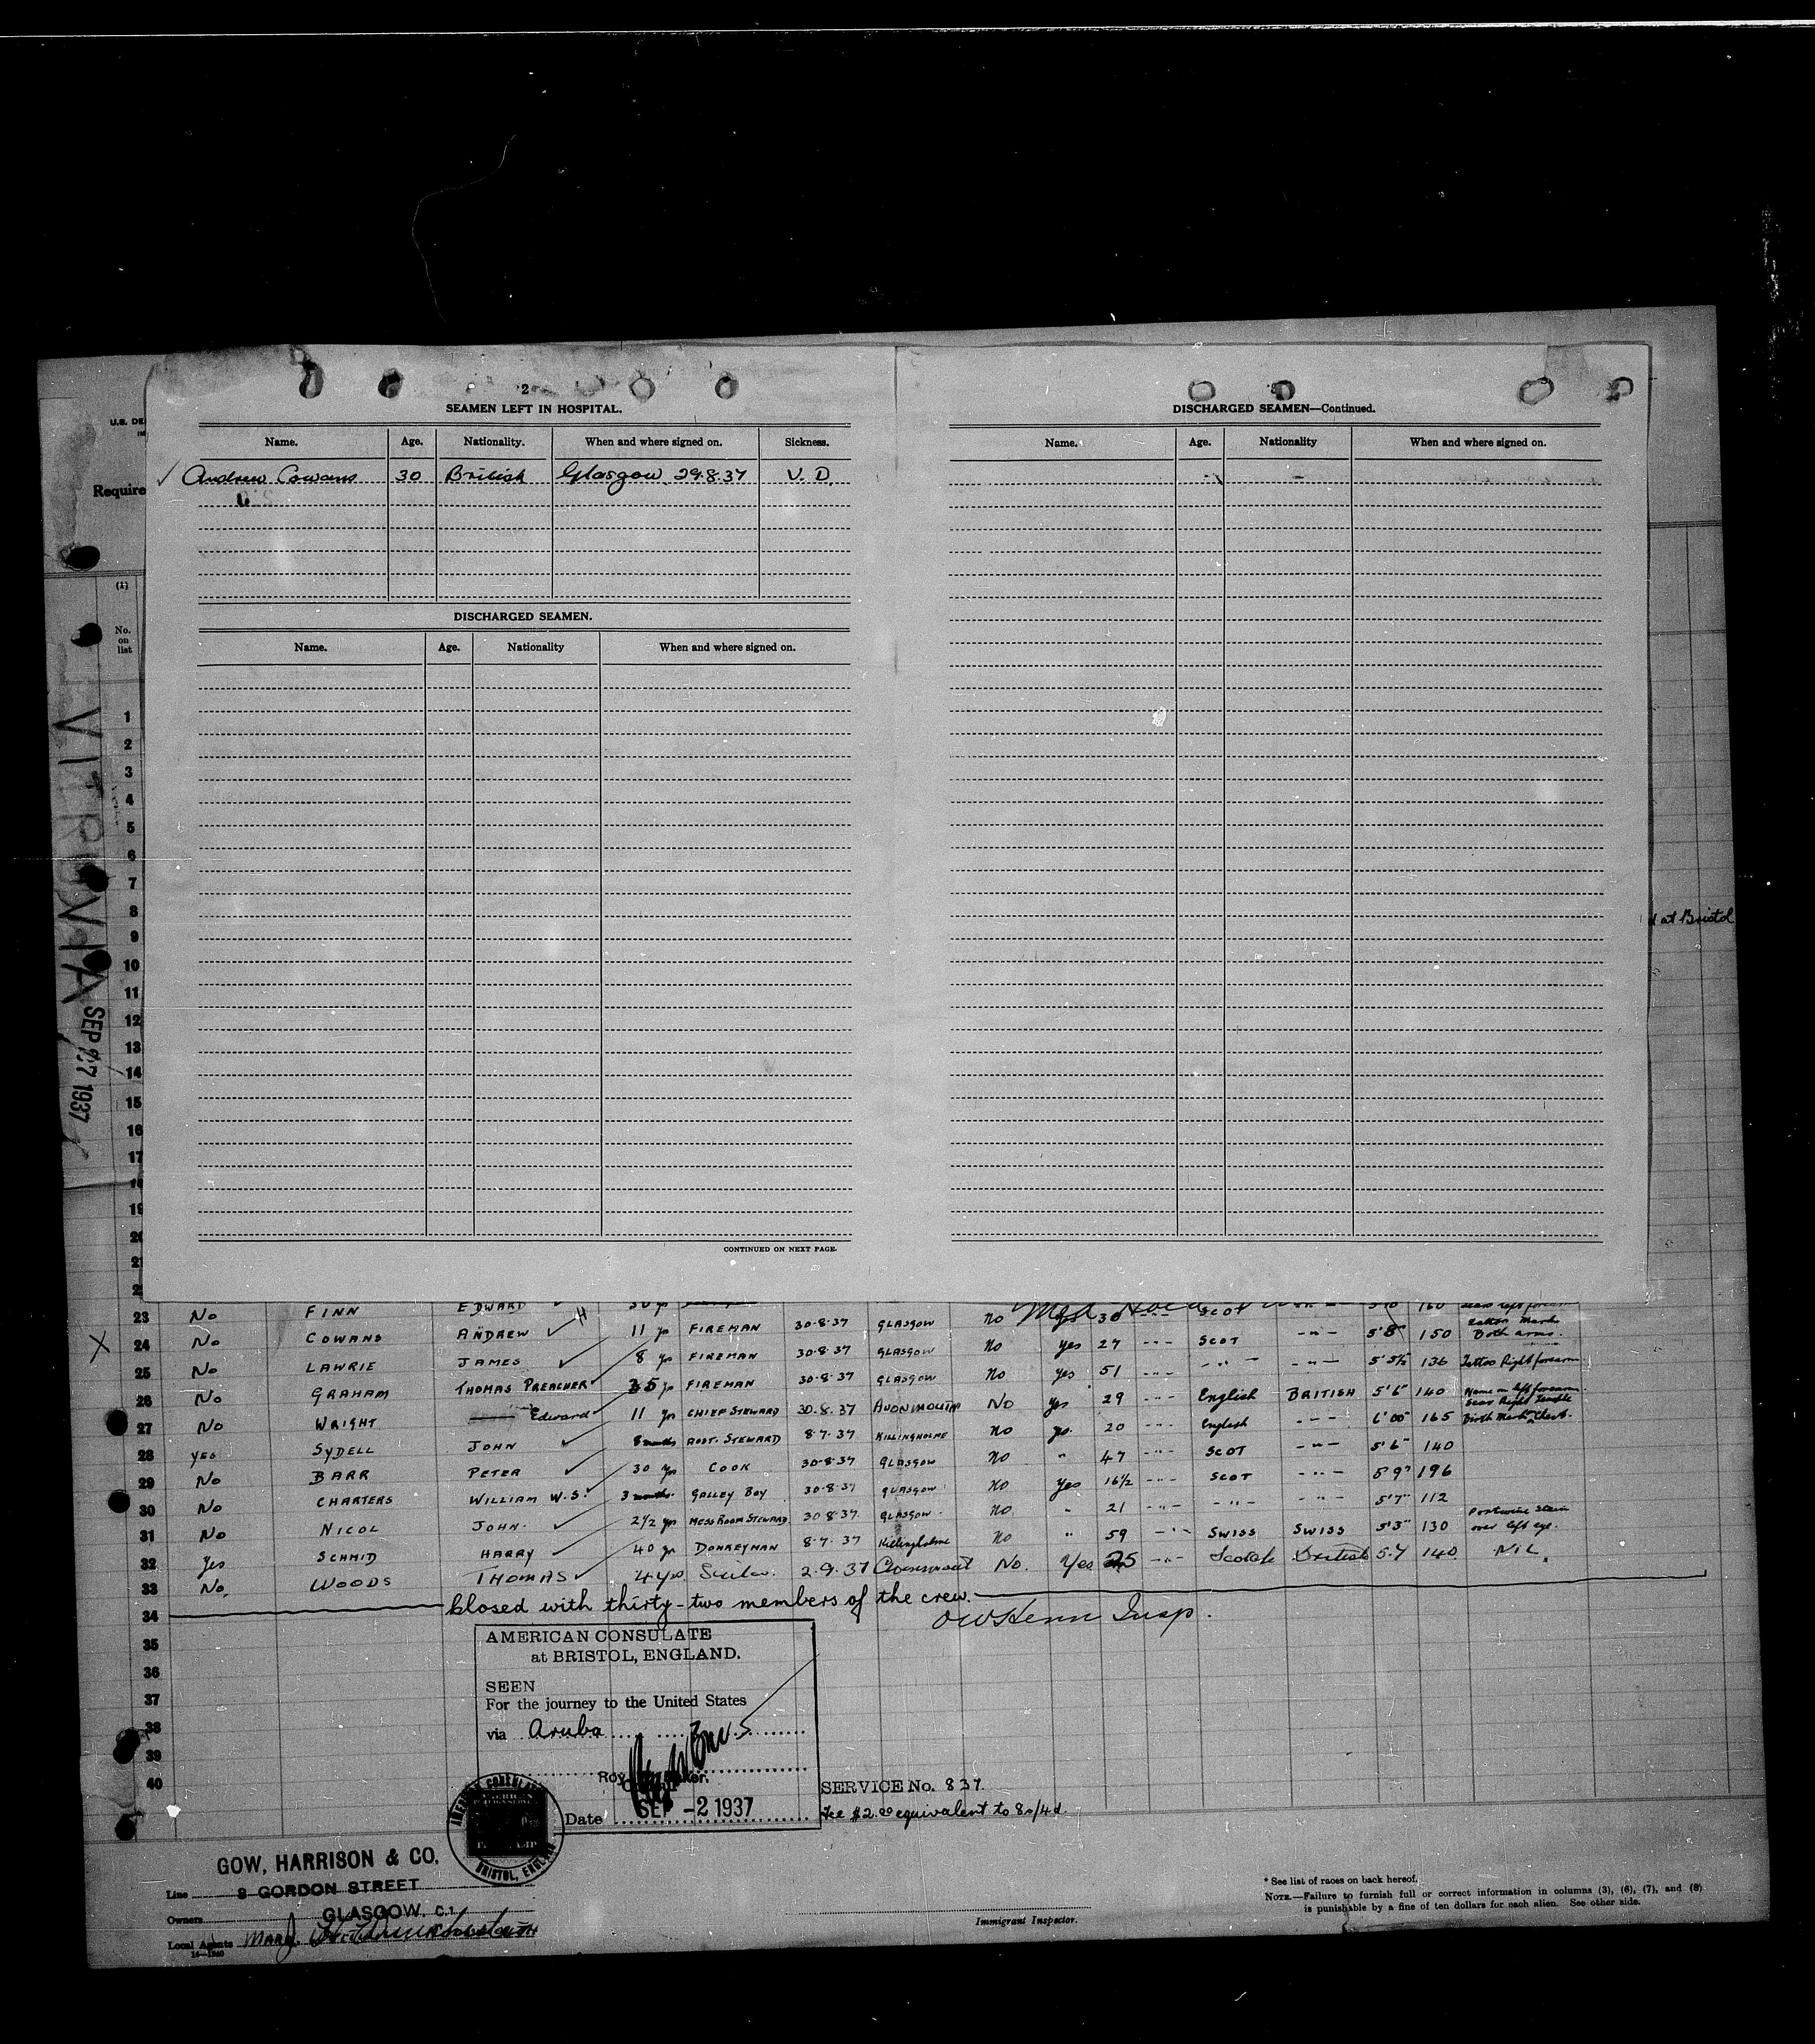 2
SEAMEN LEFT IN HOSPITAL.
Name. Age. Nationality. When and where signed on. Sickness.
Andrew Cowans 30 British Glasgow 29.8.37 V. D.
DISCHARGED SEAMEN.
Name. Age. Nationality When and where signed on.
CONTINUED ON NEXT PAGE.
3
DISCHARGED SEAMEN—Continued.
Name. Age. Nationality When and where signed on.
U.S. DE
IM
Require
(1)
No. on list
VITRUVIA
SEP 27 1937
d at Bristol
1
2
3
4
5
6
7
8
9
10
11
12
13
14
15
16
17
18
19
20
21
2
23 No FINN EDWARD 160
24 No COWANS ANDREW 11 yr FIREMAN 30-8-37 GLASGOW No 30 SCOT
X
25 No LAWRIE JAMES 8 yr FIREMAN 30-8-37 GLASGOW No yes 27 -"- SCOT -"- 5'8" 150 Both arms.
26 No GRAHAM THOMAS PREACHER 35 yr FIREMAN 30-8-37 GLASGOW No yes 51 -"- -"- -"- 5'5½ 136 Tattoo Right forearm
27 No WRIGHT Edward 11 yrs CHIEF STEWARD 30.8.37 AVONMOUTH No yes 29 -"- English BRITISH 5'6" 140 Name on left forearm Scar Right Temple
28 yes SYDELL JOHN 8 months ASST. STEWARD 8-7-37 KILLINGHOLME No yes. 20 -"- English -"- 6'00" 165 Birth Mark on Chest.
29 No BARR PETER 30 yr COOK 30-8-37 GLASGOW No " 47 -"- SCOT -"- 5'6" 140
30 No CHARTERS WILLIAM W.S. 3 months GALLEY BOY 30-8-37 GLASGOW No Yes 16½ -"- SCOT -"- 5'9" 196
31 No NICOL JOHN. 2½ yrs MESS ROOM STEWARD 30 8-37 GLASGOW. No " 21 -"- -"- -"- 5'7" 112
32 Yes SCHMID HARRY 40 yr DONKEYMAN 8-7-37 Killingholme No " 59 -"- SWISS SWISS 5'3" 130 Portwine stain over left eye.
33 No. WOODS THOMAS 4 yrs Sailor 2.9.37 No. Yes 25 -"- Scotch British 5.7 140 NIL.
34 Closed with thirty-two members of the crew.
35
36
37
38
39
40
AMERICAN CONSULATE
at BRISTOL, ENGLAND.
SEEN
For the journey to the United States
via Aruba
Date SEP -2 1937
AMERICAN CONSULATE
BRISTOL, ENGLAND
SERVICE No. 837.
Fee $2.00 equivalent to 8s/4d.
GOW, HARRISON & CO.
Line 8 GORDON STREET
Owners GLASGOW, C.1.
Local Agents
* See list of races on back hereof.
NOTE.—Failure to furnish full or correct information in columns (3), (6), (7), and (8)
is punishable by a fine of ten dollars for each alien. See other side.
Immigrant Inspector.